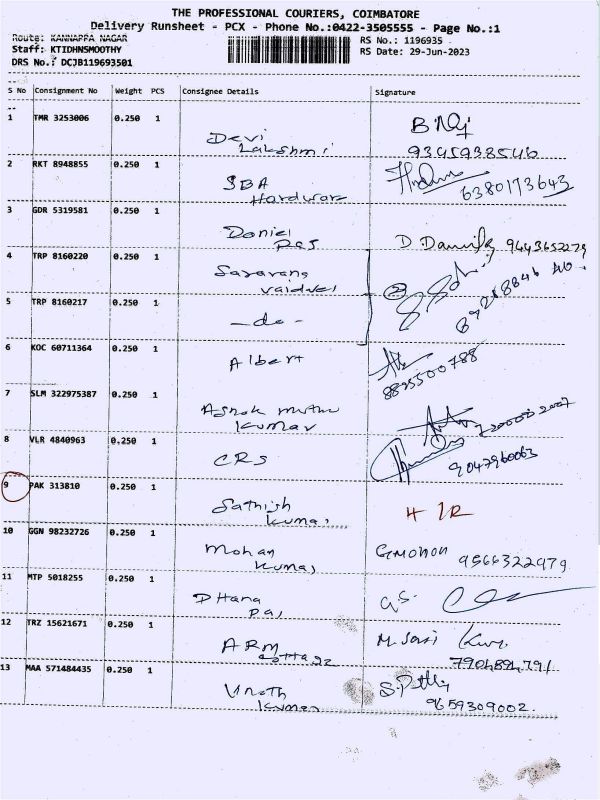 THE PROFESSIONAL COURIERS, COIMBATORE
Delivery Runsheet - PCX - Phone No.:0422-3505555 - Page No.:1
Route: KANNAPPA NAGAR
RS No.: 1196935
Staff: KTIDHNSMOOTHY
RS Date: 29-Jun-2023
DRS No.: DCJB119693501
S No Consignment No Weight PCS Consignee Details Signature
1 TMR 3253006 0.250 1
Devi
Lakshmi
9345938546
2 RKT 8948855 0.250 1
SBA
Hardware
6380173643
3 GDR 5319581 0.250 1
Daniel
Raj
9443652279
4 TRP 8160220 0.250 1
Saravana
5 TRP 8160217 0.250 1
- do -
2
6 KOC 60711364 0.250 1
Albert
8825500788
7 SLM 322975387 0.250 1
Ashok Muthu
Kumar
8 VLR 4840963 0.250 1
CRS
9047960063
9 PAK 313810 0.250 1
Sathish
Kumar
10 GGN 98232726 0.250 1
Mohan
Kumar
9566322979
11 MTP 5018255 0.250 1
Dhana
12 TRZ 15621671 0.250 1
ARM
Cottage
M. Sasi
7904894791
13 MAA 571484435 0.250 1
Kumar
9659309002